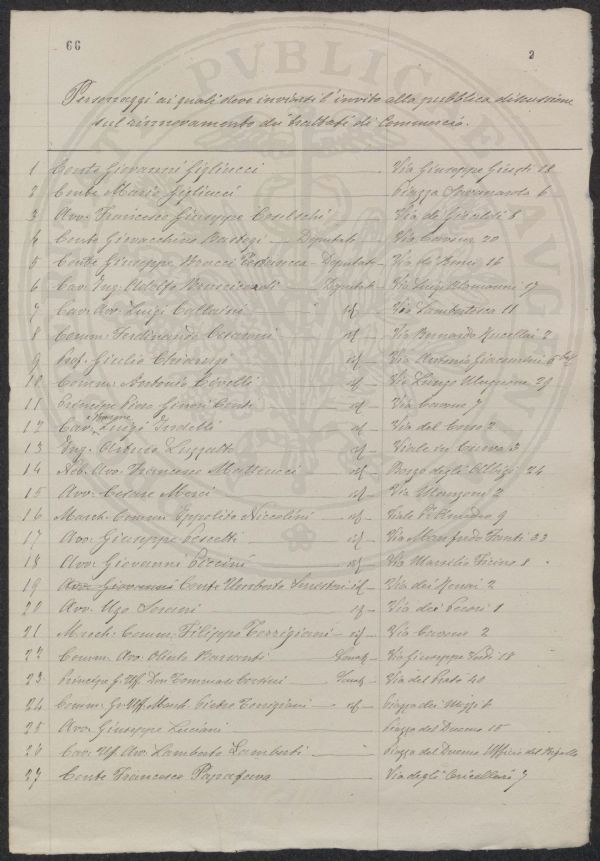 66
2
Personaggi ai quali deve inviarsi l'invito alla pubblica discussione
sul rinnovamento dei trattati di Commercio.
1 Conte Giovanni Gigliucci Via Giuseppe Giusti 18
2 Conte Mario Gigliucci Piazza Savonarola 6
3 Avv. Francesco Giuseppe Via de' Ginori 8
4 Conte Giovacchino Bastogi Deputato Via Cavour 20
5 Conte Giuseppe Deputato Via de' 16
6 Cav. Ing. Adolfo Deputato Via Luigi Alamanni 17
7 Cav. Avv. Luigi Callaini id Via Lambertesca 11
8 Comm. Ferdinando id Via Bernardo Rucellai 2
9 Prof. Giulio Chiarugi id Via Giacomini 5 bis
10 Comm. Antonio Civelli id Via Lungo Mugnone 29
11 Principe Piero Ginori Conti id Via Cavour 7
12 Cav. Luigi id Via del Corso 2
13 Ing. Arturo Luzzatto id Viale in Curva 3
14 Nob. Avv. Francesco Matteucci id Borgo degli Albizi 24
15 Avv. Cesare Merci id Via Manzoni 2
16 March. Comm. Ippolito Niccolini id Viale 9
17 Avv. Giuseppe Pescetti id Via Manfredo Fanti 33
18 Avv. Giovanni Piccini id Via Marsilio Ficino 8
19 Avv. Giovanni Conte Umberto Serristori id Via dei Renai 2
20 Avv. Ugo Sorani id Via dei Pecori 1
21 March. Comm. Filippo Torrigiani id Via Cavour 2
22 Comm. Avv. Olinto Barsanti Senat. Via Giuseppe Verdi 18
23 Principe G. Uff. Don Tommaso Corsini Senat. Via del Prato 40
24 Comm. Gr. Uff. March. Pietro Torrigiani id Piazza dei Mozzi 6
25 Avv. Giuseppe Luciani Piazza del Duomo 15
26 Cav. Uff. Avv. Lamberto Lamberti Piazza del Duomo Ufficio del
27 Conte Francesco Papafava Via degli Oricellari 7
PVBLIC
AVGVSTINI